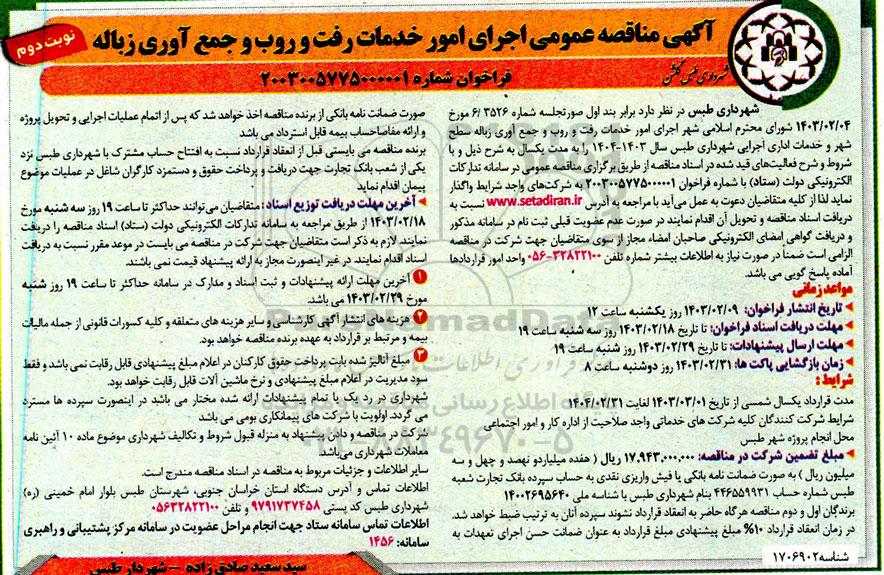 آگهی مناقصه عمومی اجرای امور خدمات رفت و روب و جمع آوری زباله
نوبت دوم
شهرداری طبس گلشن
فراخوان شماره ۲۰۰۳۰۰۵۷۷۵۰۰۰۰۰۱
شهرداری طبس در نظر دارد برابر بند اول صورتجلسه شماره ۶/۳۵۲۶ مورخ
۱۴۰۳/۰۲/۰۴ شورای محترم اسلامی شهر اجرای امور خدمات رفت و روب و جمع آوری زباله سطح
شهر و خدمات اداری اجرایی شهرداری طبس سال ۱۴۰۳-۱۴۰۴ را به مدت یکسال به شرح ذیل و با
شروط و شرح فعالیت‌های قید شده در اسناد مناقصه از طریق برگزاری مناقصه عمومی در سامانه تدارکات
الکترونیکی دولت (ستاد) با شماره فراخوان ۲۰۰۳۰۰۵۷۷۵۰۰۰۰۰۱ به شرکت‌های واجد شرایط واگذار
نماید لذا از کلیه متقاضیان دعوت به عمل می‌آید با مراجعه به آدرس www.setadiran.ir نسبت به
دریافت اسناد مناقصه و تحویل آن اقدام نمایند در صورت عدم عضویت قبلی ثبت نام در سامانه مذکور
و دریافت گواهی امضای الکترونیکی صاحبان امضاء مجاز از سوی متقاضیان جهت شرکت در مناقصه
الزامی است ضمناً در صورت نیاز به اطلاعات بیشتر شماره تلفن ۳۲۸۲۲۱۰۰-۰۵۶ واحد امور قراردادها
آماده پاسخ گویی می باشد.
مواعد زمانی
تاریخ انتشار فراخوان: ۱۴۰۳/۰۲/۰۹ روز یکشنبه ساعت ۱۲
مهلت دریافت اسناد فراخوان: تا تاریخ ۱۴۰۳/۰۲/۱۸ روز سه شنبه ساعت ۱۹
مهلت ارسال پیشنهادات: تا تاریخ ۱۴۰۳/۰۲/۲۹ روز شنبه ساعت ۱۹
زمان بازگشایی پاکت ها: ۱۴۰۳/۰۲/۳۱ روز دوشنبه ساعت ۸
شرایط:
مدت قرارداد یکسال شمسی از تاریخ ۱۴۰۳/۰۳/۰۱ لغایت ۱۴۰۴/۰۲/۳۱
شرایط شرکت کنندگان کلیه شرکت های خدماتی واجد صلاحیت از اداره کار و امور اجتماعی
محل انجام پروژه شهر طبس
مبلغ تضمین شرکت در مناقصه: ۱۷,۹۴۳,۰۰۰,۰۰۰ ریال ( هفده میلیاردو نهصد و چهل و سه
میلیون ریال ) به صورت ضمانت نامه بانکی یا فیش واریزی نقدی به حساب سپرده بانک تجارت شعبه
طبس شماره حساب ۴۴۶۵۵۹۹۳۱ بنام شهرداری طبس با شناسه ملی ۱۴۰۰۲۶۹۵۶۴۰
برندگان اول و دوم مناقصه هرگاه حاضر به انعقاد قرارداد نشوند سپرده آنان به ترتیب ضبط خواهد شد.
در زمان انعقاد قرارداد ۱۰% مبلغ پیشنهادی مبلغ قرارداد به عنوان ضمانت حسن اجرای تعهدات به
صورت ضمانت نامه بانکی از برنده مناقصه اخذ خواهد شد که پس از اتمام عملیات اجرایی و تحویل پروژه
و ارائه مفاصاحساب بیمه قابل استرداد می باشد
برنده مناقصه می بایستی قبل از انعقاد قرارداد نسبت به افتتاح حساب مشترک با شهرداری طبس نزد
یکی از شعب بانک تجارت جهت دریافت و پرداخت حقوق و دستمزد کارگران شاغل در عملیات موضوع
پیمان اقدام نماید
آخرین مهلت دریافت توزیع اسناد: متقاضیان می‌توانند حداکثر تا ساعت ۱۹ روز سه شنبه مورخ
۱۴۰۳/۰۲/۱۸ از طریق مراجعه به سامانه تدارکات الکترونیکی دولت (ستاد) اسناد مناقصه را دریافت
نمایند. لازم به ذکر است متقاضیان جهت شرکت در مناقصه می بایست در موعد مقرر نسبت به دریافت
اسناد اقدام نمایند. در غیر اینصورت مجاز به ارائه پیشنهاد قیمت نمی باشند.
۱ آخرین مهلت ارائه پیشنهادات و ثبت اسناد و مدارک در سامانه حداکثر تا ساعت ۱۹ روز شنبه
مورخ ۱۴۰۳/۰۲/۲۹ می باشد.
۲ هزینه های انتشار آگهی کارشناسی و سایر هزینه های متعلقه و کلیه کسورات قانونی از جمله مالیات
بیمه و مرتبط بر قرارداد به عهده برنده مناقصه خواهد بود.
۳ مبلغ آنالیز شده بابت پرداخت حقوق کارکنان در اعلام مبلغ پیشنهادی قابل رقابت نمی باشد و فقط
سود مدیریت در اعلام مبلغ پیشنهادی و نرخ ماشین آلات قابل رقابت خواهد بود.
شهرداری در رد یک یا تمام پیشنهادات ارائه شده مختار می باشد در اینصورت سپرده ها مسترد
می گردد. اولویت با شرکت های پیمانکاری بومی می باشد
شرکت در مناقصه و دادن پیشنهاد به منزله قبول شروط و تکالیف شهرداری موضوع ماده ۱۰ آئین نامه
معاملات شهرداری می‌باشد.
سایر اطلاعات و جزئیات مربوط به مناقصه در اسناد مناقصه مندرج است.
اطلاعات تماس و آدرس دستگاه استان خراسان جنوبی، شهرستان طبس بلوار امام خمینی (ره)
شهرداری طبس کد پستی ۹۷۹۱۷۳۷۴۵۸ و تلفن ۰۵۶۳۲۸۲۲۱۰۰
اطلاعات تماس سامانه ستاد جهت انجام مراحل عضویت در سامانه مرکز پشتیبانی و راهبری
سامانه: ۱۴۵۶
شناسه ۱۷۰۶۹۰۲
سید سعید صادق زاده – شهردار طبس